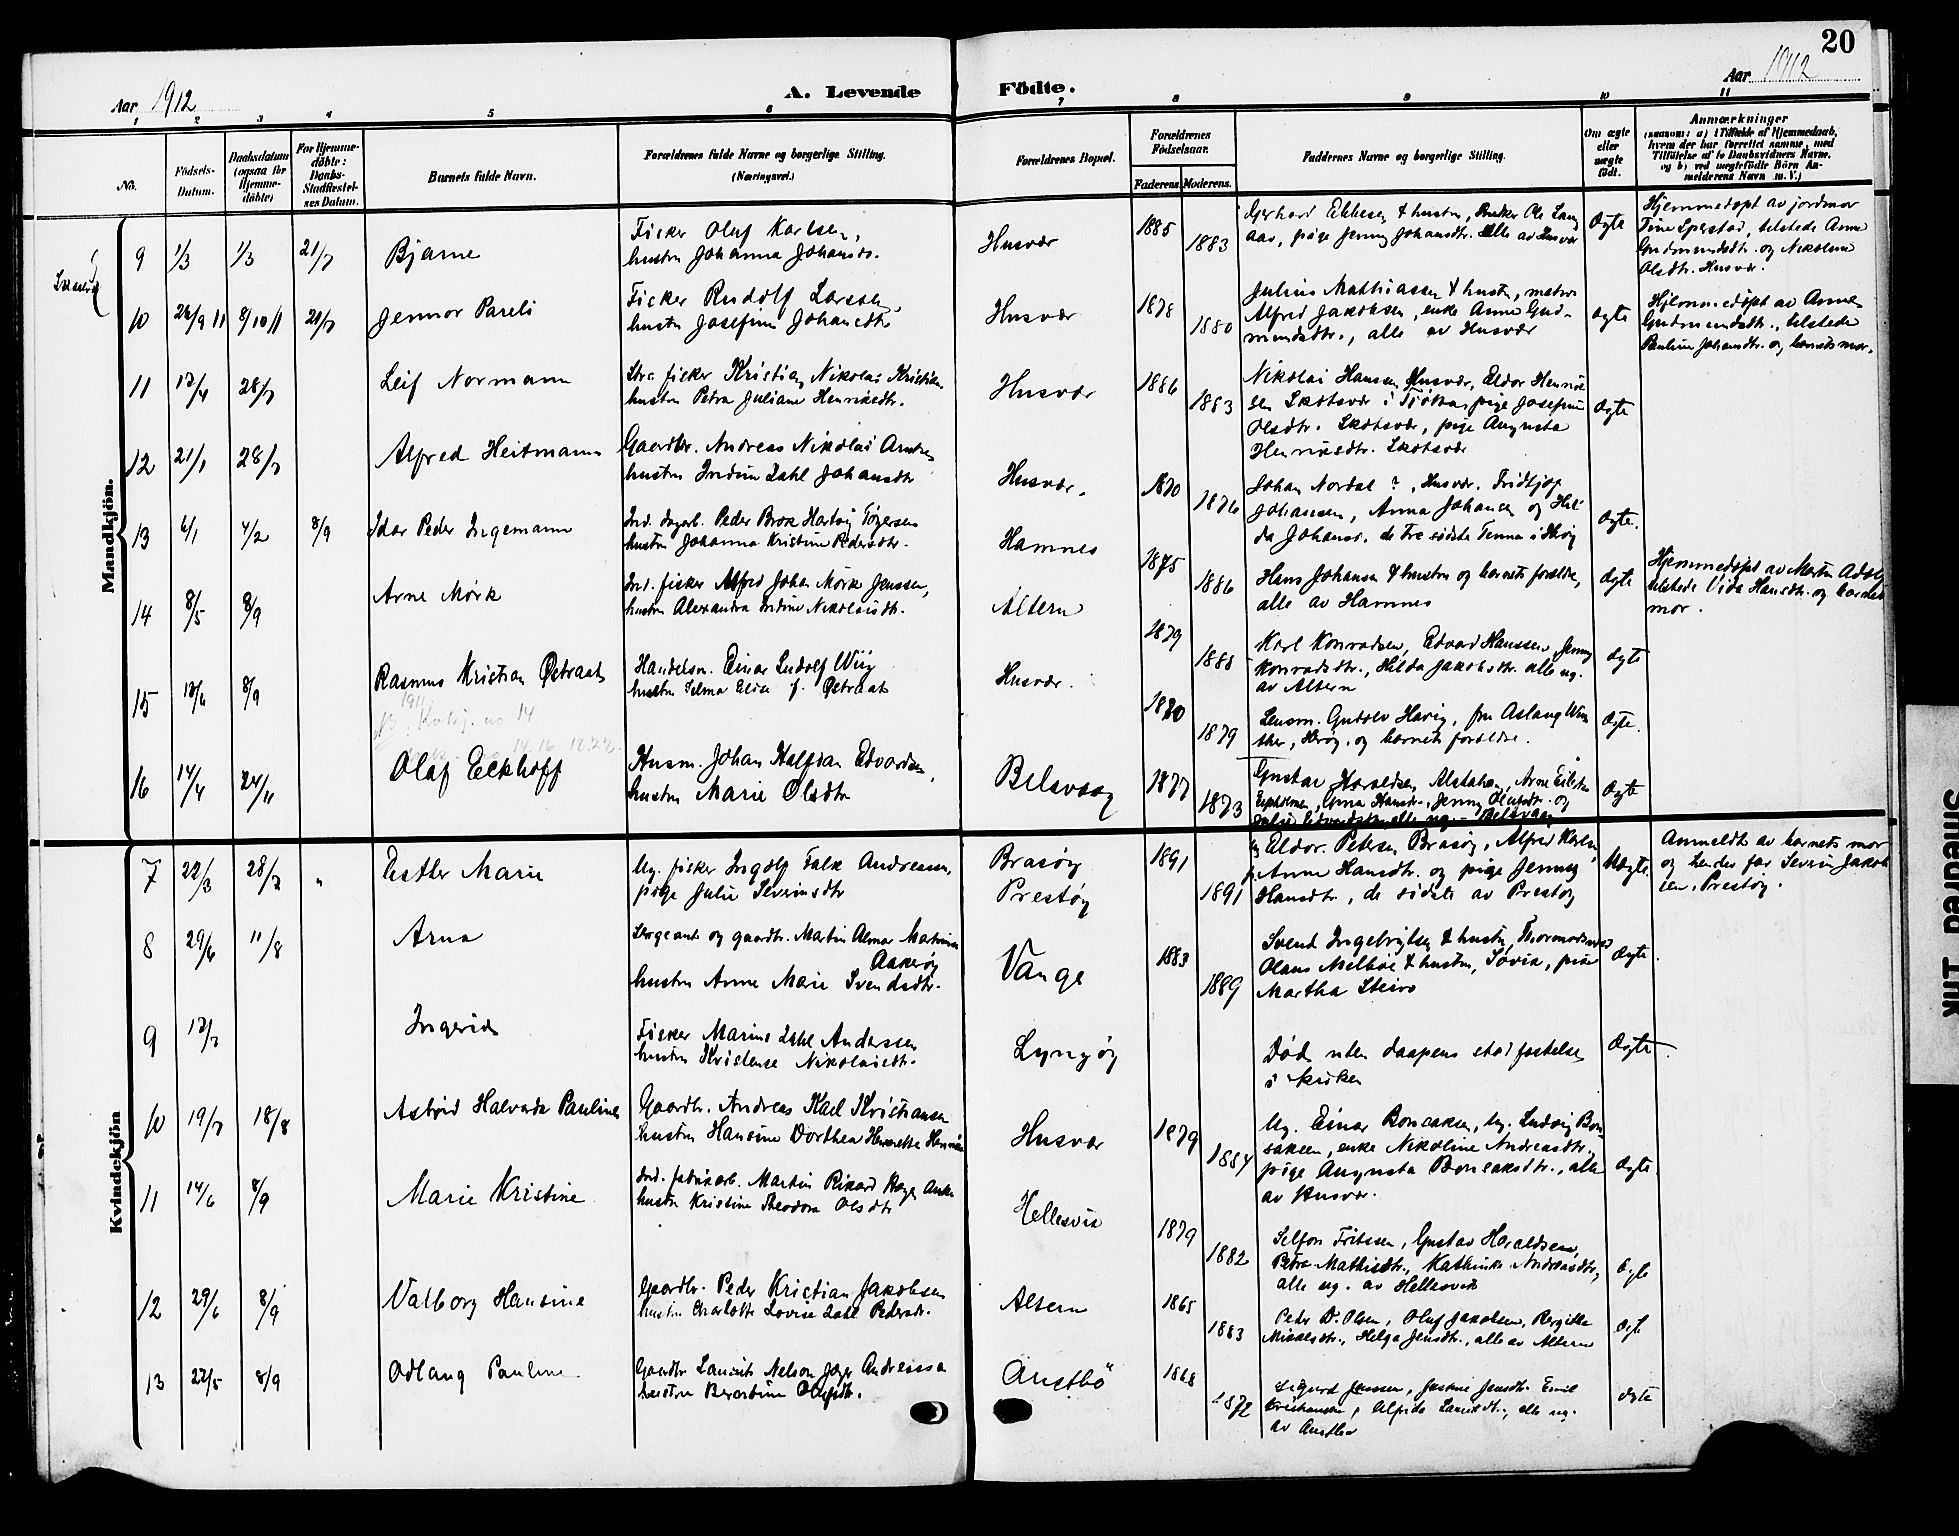 20
Aar 1912
A. Levende
Födte.
Aar 1912
1 2 3 4 5 6 7 8 9 10 11
No.
Födsels-
Datum.
Daabsdatum
(ogsaa for
Hjemme-
döbte)
For Hjemme-
döbte:
Daabs-
Stadfæstel-
ses Datum.
Barnets fulde Navn.
Forældrenes fulde Navne og borgerlige Stilling.
(Næringsvei.)
Forældrenes Bopæl.
Forældrenes
Födselsaar.
Faderens.
Moderens.
Faddernes Navne og borgerlige Stilling.
Om ægte
eller
uægte
födt.
Anmærkninger
(saasom: a) i Tilfælde af Hjemmedaab,
hvem der har forrettet samme, med
Tilföielse af to Daabsvidners Navne,
og b) ved uægtefödte Börn An-
melderens Navn m. V.)
Mandkjön.
9 1/3 1/3 21/7 Bjarne
Fisker Oluf Karlsen,
hustru Johanna Johansdr.
Husvær 1885 1883
Gerhard Ebbesen & hustru, Ole
pige Jenny Johansdtr. alle av Husvær
Ægte
Hjemmedøpt av jordmor
Tine tilstede Anne
Gudmundsdtr. og Nikoline
Olsdtr. Husvær.
10 26/9 11 8/10 11 21/7 Jenmor Pareli
Fisker Rudolf Larsen,
hustru Josefine Johansdtr
Husvær 1878 1880
Julius Mathiassen & hustru,
Alfred Jakobsen, enke Anne Gud-
mundsdtr., alle av Husvær
Ægte
Hjemmedøpt av Anne
Gudmundsdtr., tilstede
Pauline Johansdtr. og barnets mor.
11 12/4 28/7 Leif Normann
fisker Kristian Nikolai Kristian
hustru Petra Juliane Henriksdtr.
Husvær 1886 1883
Nikolai Hansen Husvær, Eldor Henrik
sen Skotsvær i Tjøtta, pige Josefine
Olsdtr. Skotsvær, pige Augusta
Henriksdtr. Skotsvær
Ægte
12 21/1 28/7 Alfred Heitmann
Gaardbr. Andreas Nikolai
hustru Indine Dahl Johansdtr
Husvær. 1870 1876
Johan Nordal ?, Husvær. Fridtjof
Johansen, Anna Johansen og Hil
da Johans. de tre sidste Tenna i Herøy
Ægte.
13 6/1 4/2 8/9 Idar Peder Ingemann
Ind. Peder Brox Hartvig
hustru Johanna Kristine Pedersdtr.
Hamnes 1875 1886
Hans Johansen & hustru og barnets forældre,
alle av Hamnes
Ægte
Hjemmedøpt av Martin
tilstede Vida Hansdtr. og barnets
mor.
14 8/5 8/9 Arne Mørk
Ind. fisker Alfred Johan Mørk Jenssen,
hustru Alexandra Indine Nikolaisdtr.
Altern 1879 1885
Karl Konradsen, Edvard Hanssen, Jenny
Konradsdtr., Hilda Jakobsdtr. alle ug.
av Altern
Ægte
15 12/6 8/9 Rasmus Kristian Østraat
Handelsm. Einar Ludolf Wiig
hustru Selma Elise f. Østraat
Husvær. 1880 1879
Lensm. Gudolv Havig, fru Aslaug
Herøy, og barnets forældre.
Ægte.
16 14/4 24/11 Olaf Eckhoff
Husm. Johan Halfdan Edvardsen,
hustru Marie Olsdtr
Belsvaag 1877 1873
Gustav Haraldsen, Alstahaug, Arne
Jenny Olufsdtr. og
alle ug. Belsvaag
Ægte
Kvindekjön
7 22/3 28/7 " Esther Marie
Ug. fisker Ingolf Falk Andreassen,
pige Julie Severinsdtr
Brasøy
Prestøy
1891 1891
Eldor Petersen Brasøy, Alfred Karlsen,
Anne Hansdtr. og pige Jenny
Hansdtr, de sidste av Prestøy
Uægte.
Anmeldt av barnets mor
og hendes far Severin Jakob
sen, Prestøy.
8 29/6 11/8 Arna
Sergeant og gaardbr. Martin Almar
Aakerøy
hustru Anne Marie Svendsdtr.
Vange 1883 1889
Svend Ingebrigtsen & hustru,
Olaus & hustru, pige
Martha
Ægte.
9 12/7 Ingerid
Fisker Marius Dahl Anderssen
hustru Kristense Nikolaisdtr.
Lyngøy
Død uten daapens stadfæstelse
i kirken
Ægte.
10 19/7 18/8 Astrid Halvarda Pauline
Gaardbr. Andreas Karl Kristiansen
hustru Hansine Dorthea
Husvær 1879 1884
Ug. Einar Bonsaksen, ug. Ludvig Bon-
saksen, enke Nikoline Andreasdtr.,
pige Augusta Bonsaksdtr., alle
av Husvær.
Ægte.
11 14/6 8/9 Marie Kristine
Ind. fabrikarb. Martin Rikard
hustru Kristine Theodora Olsdtr
Hellesvik 1879 1882
Gustav Haraldsen,
Petra Mathisdtr., Kathinka Andreasdtr,
alle ug. av Hellesvik
Ægte
12 29/6 8/9 Valborg Hansine
Gaardbr. Peder Kristian Jakobsen
hustru Charlotte Lovise Dahl Pedersdtr.
Altern 1865 1883
Peder D. Olsen, Oluf Jakobsen, Bergitte
Mikalsdtr., Helga Jensdtr., alle av Altern
Ægte
13 22/5 8/9 Odlaug Pauline
Gaardbr Laurits Nelson Jæger
hustru Olufsdtr.
Austbø 1868 1872
Sigurd Jenssen, Justine Jensdtr. Emil
Kristiansen, Alfrida Lauritsdtr., alle ug.
av Austbø
Ægte
Smeared Ink